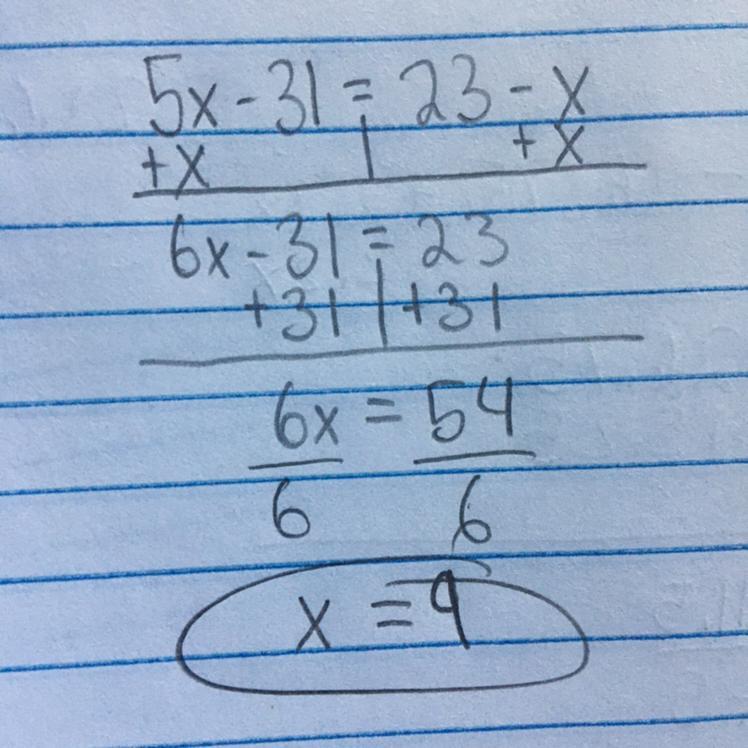 5x - 31 = 23 - x
+x | + x
6x - 31 = 23
+31 | +31
6x = 54
6 6
x = 9